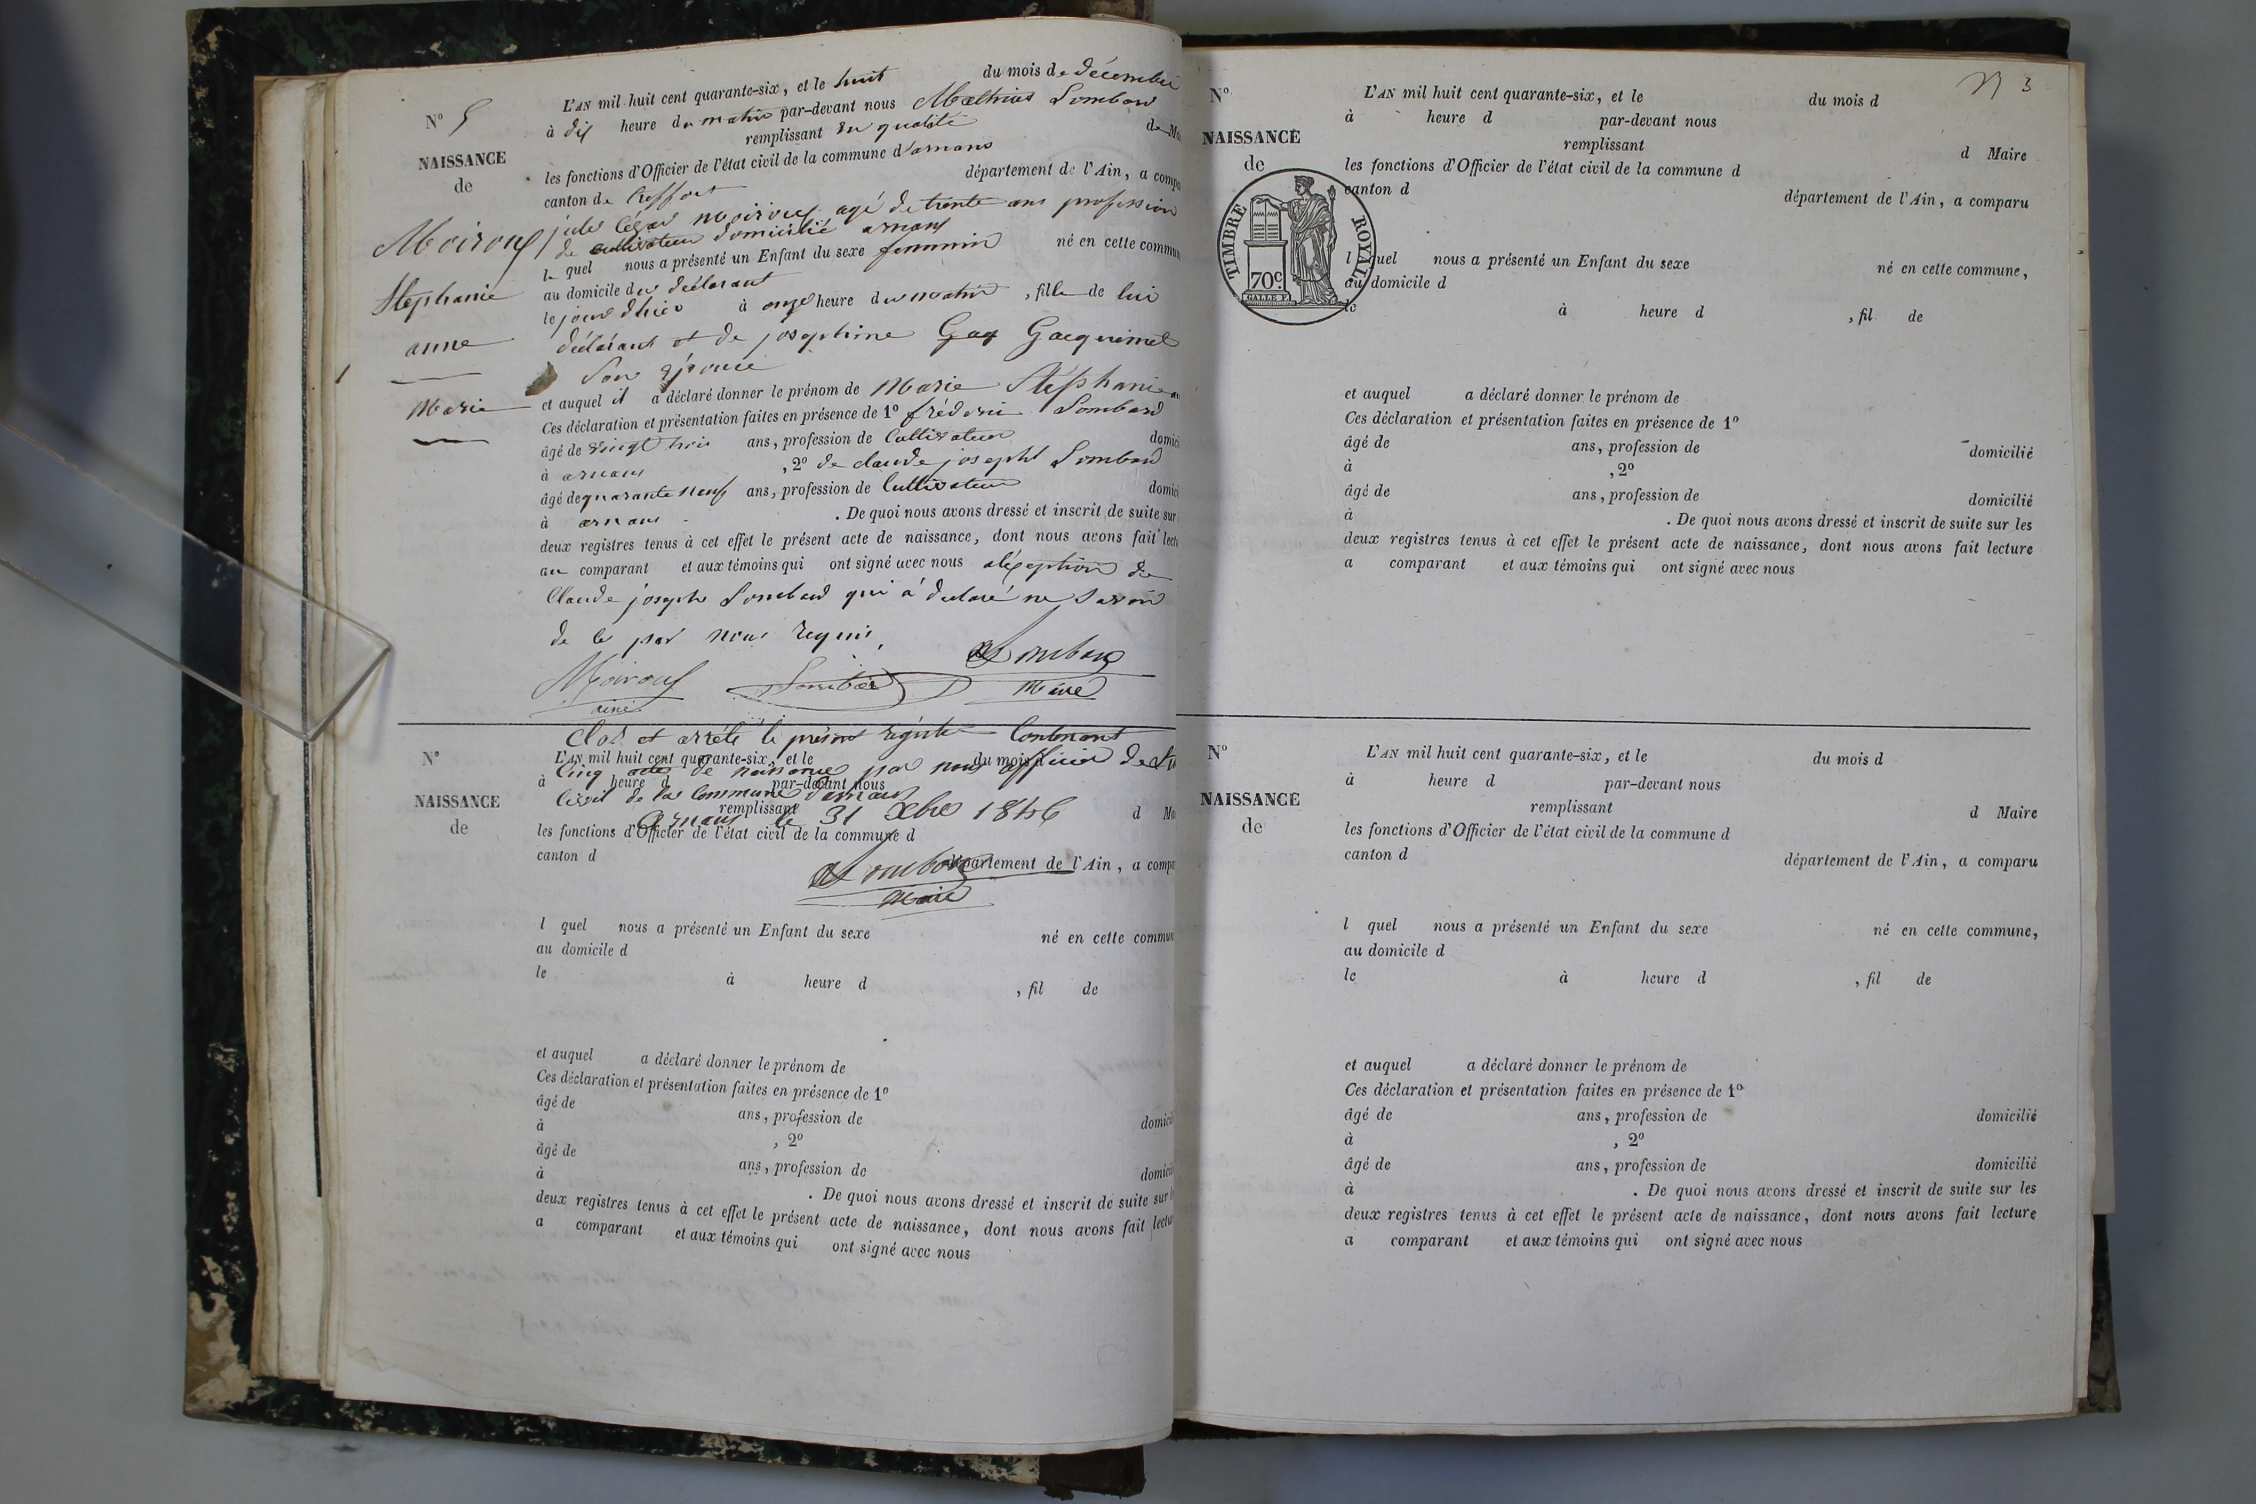 N° 5
NAISSANCE
de
Moiroux
Stephanie
anne
Marie
L'AN mil huit cent quarante-six, et le huit du mois de décembre
à dix heure du matin par-devant nous Mathias Lombard
remplissant en qualité de Ma
les fonctions d'Officier de l'état civil de la commune d'arnans
canton de Treffort département de l'Ain, a compa
jules César Moiroux agé de trente ans profession
de cultivateur domicilié arnans
le quel nous a présenté un Enfant du sexe feminin né en cette commun
au domicile du déclarant
le jour d'hier à onze heure du matin, fille de lui
déclarant et de josephine Gaq Gacquimet
son épouse
et auquel il a déclaré donner le prénom de Marie Stéphanie
Ces déclaration et présentation faites en présence de 1° fréderic Lombard
âgé de vingt trois ans, profession de Cultivateur domici
à arnans, 2° de claude joseph Lombard
âgé de quarante neuf ans, profession de Cultivateur domici
à arnans. De quoi nous avons dressé et inscrit de suite sur
deux registres tenus à cet effet le présent acte de naissance, dont nous avons fait lectu
au comparant et aux témoins qui ont signé avec nous aléxeption de
Claude joseph Lombard qui à déclaré ne savoir
de ce par nous requis,
Moiroux Lombard Lombard
ainé Maire
N°
NAISSANCE
de
Clos et arrété le présent régistre Contenant
L'AN mil huit cent quarante-six, et le du mois d
Cinq actes de naissance par nous officier de
à heure d par-devant nous
Civil de la Commune d'arnans
remplissant d Ma
Arnans le 31 Xbre 1846
les fonctions d'Officier de l'état civil de la commune d
canton d département de l'Ain, a compa
Lombard
Maire
l quel nous a présenté un Enfant du sexe né en cette commun
au domicile d
le à heure d, fil de
et auquel a déclaré donner le prénom de
Ces déclaration et présentation faites en présence de 1°
âgé de ans, profession de domicili
à, 2°
âgé de ans, profession de domicili
à. De quoi nous avons dressé et inscrit de suite sur l
deux registres tenus à cet effet le présent acte de naissance, dont nous avons fait lectur
a comparant et aux témoins qui ont signé avec nous
3
N°
NAISSANCE
de
TIMBRE ROYAL
70c
L'AN mil huit cent quarante-six, et le du mois d
à heure d par-devant nous
remplissant d Maire
les fonctions d'Officier de l'état civil de la commune d
canton d département de l'Ain, a comparu
l quel nous a présenté un Enfant du sexe né en cette commune,
au domicile d
le à heure d, fil de
et auquel a déclaré donner le prénom de
Ces déclaration et présentation faites en présence de 1°
âgé de ans, profession de domicilié
à, 2°
âgé de ans, profession de domicilié
à. De quoi nous avons dressé et inscrit de suite sur les
deux registres tenus à cet effet le présent acte de naissance, dont nous avons fait lecture
a comparant et aux témoins qui ont signé avec nous
N°
NAISSANCE
de
L'AN mil huit cent quarante-six, et le du mois d
à heure d par-devant nous
remplissant d Maire
les fonctions d'Officier de l'état civil de la commune d
canton d département de l'Ain, a comparu
l quel nous a présenté un Enfant du sexe né en cette commune,
au domicile d
le à heure d, fil de
et auquel a déclaré donner le prénom de
Ces déclaration et présentation faites en présence de 1°
âgé de ans, profession de domicilié
à, 2°
âgé de ans, profession de domicilié
à. De quoi nous avons dressé et inscrit de suite sur les
deux registres tenus à cet effet le présent acte de naissance, dont nous avons fait lecture
a comparant et aux témoins qui ont signé avec nous